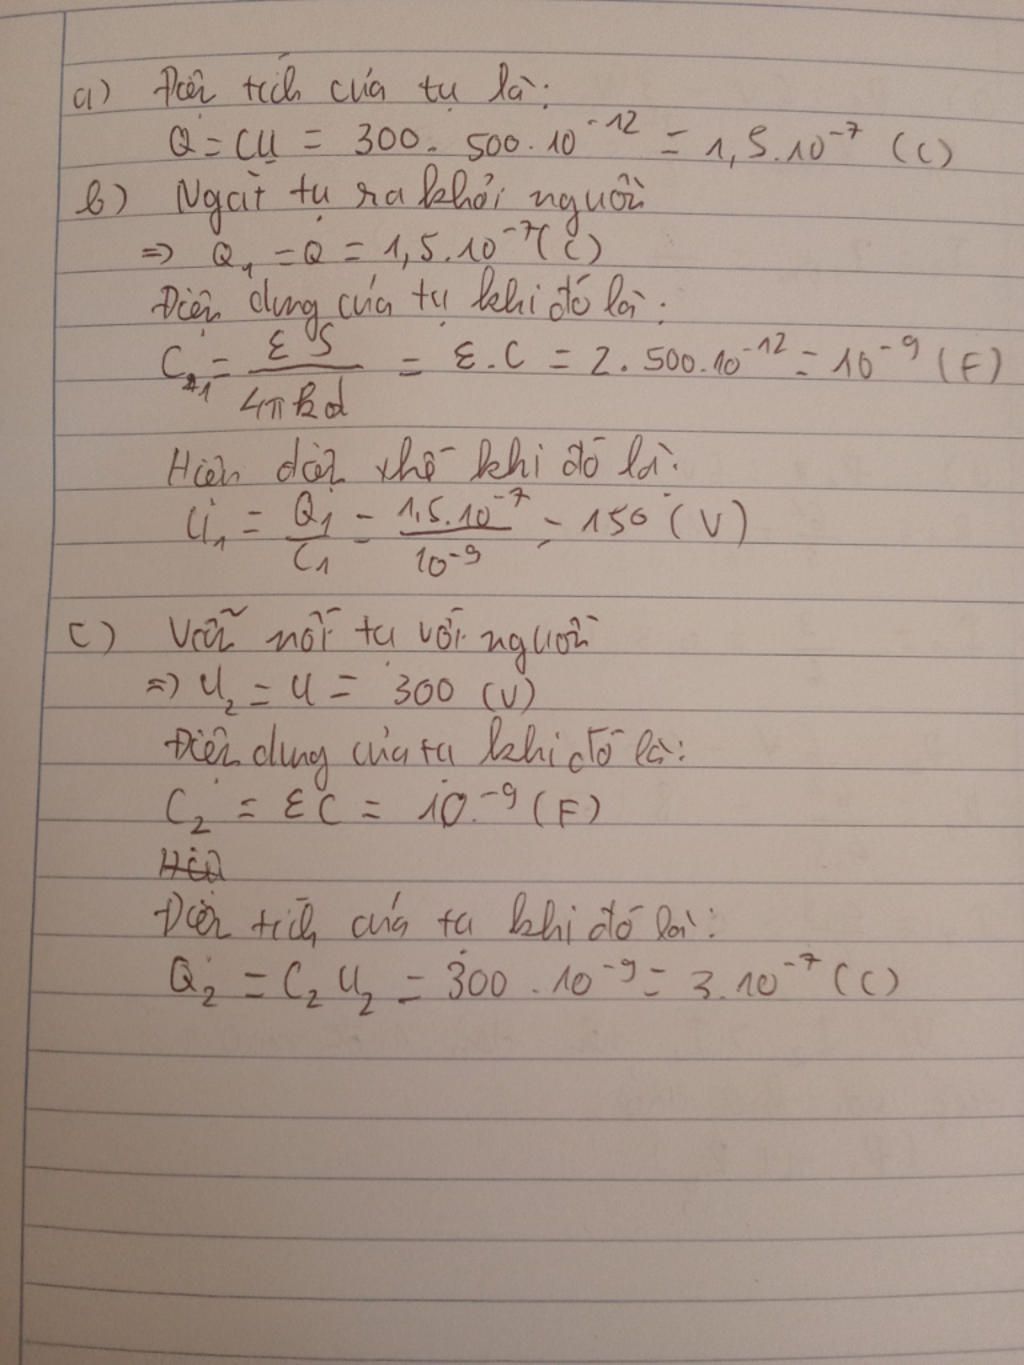 a) Điện tích của tụ là:
Q = CU = 300. 500.10⁻¹² = 1,5.10⁻⁷ (C)
b) Ngắt tụ ra khỏi nguồn
=> Q₁ = Q = 1,5.10⁻⁷ (C)
Điện dung của tụ khi đó là:
C₁ = εS / 4πkd = ε.C = 2. 500.10⁻¹² = 10⁻⁹ (F)
Hiệu điện thế khi đó là:
U₁ = Q₁ / C₁ = 1,5.10⁻⁷ / 10⁻⁹ = 150 (V)
c) Vẫn nối tụ với nguồn
=> U₂ = U = 300 (V)
Điện dung của tụ khi đó là:
C₂ = εC = 10⁻⁹ (F)
Điện tích của tụ khi đó là:
Q₂ = C₂U₂ = 300 . 10⁻⁹ = 3.10⁻⁷ (C)